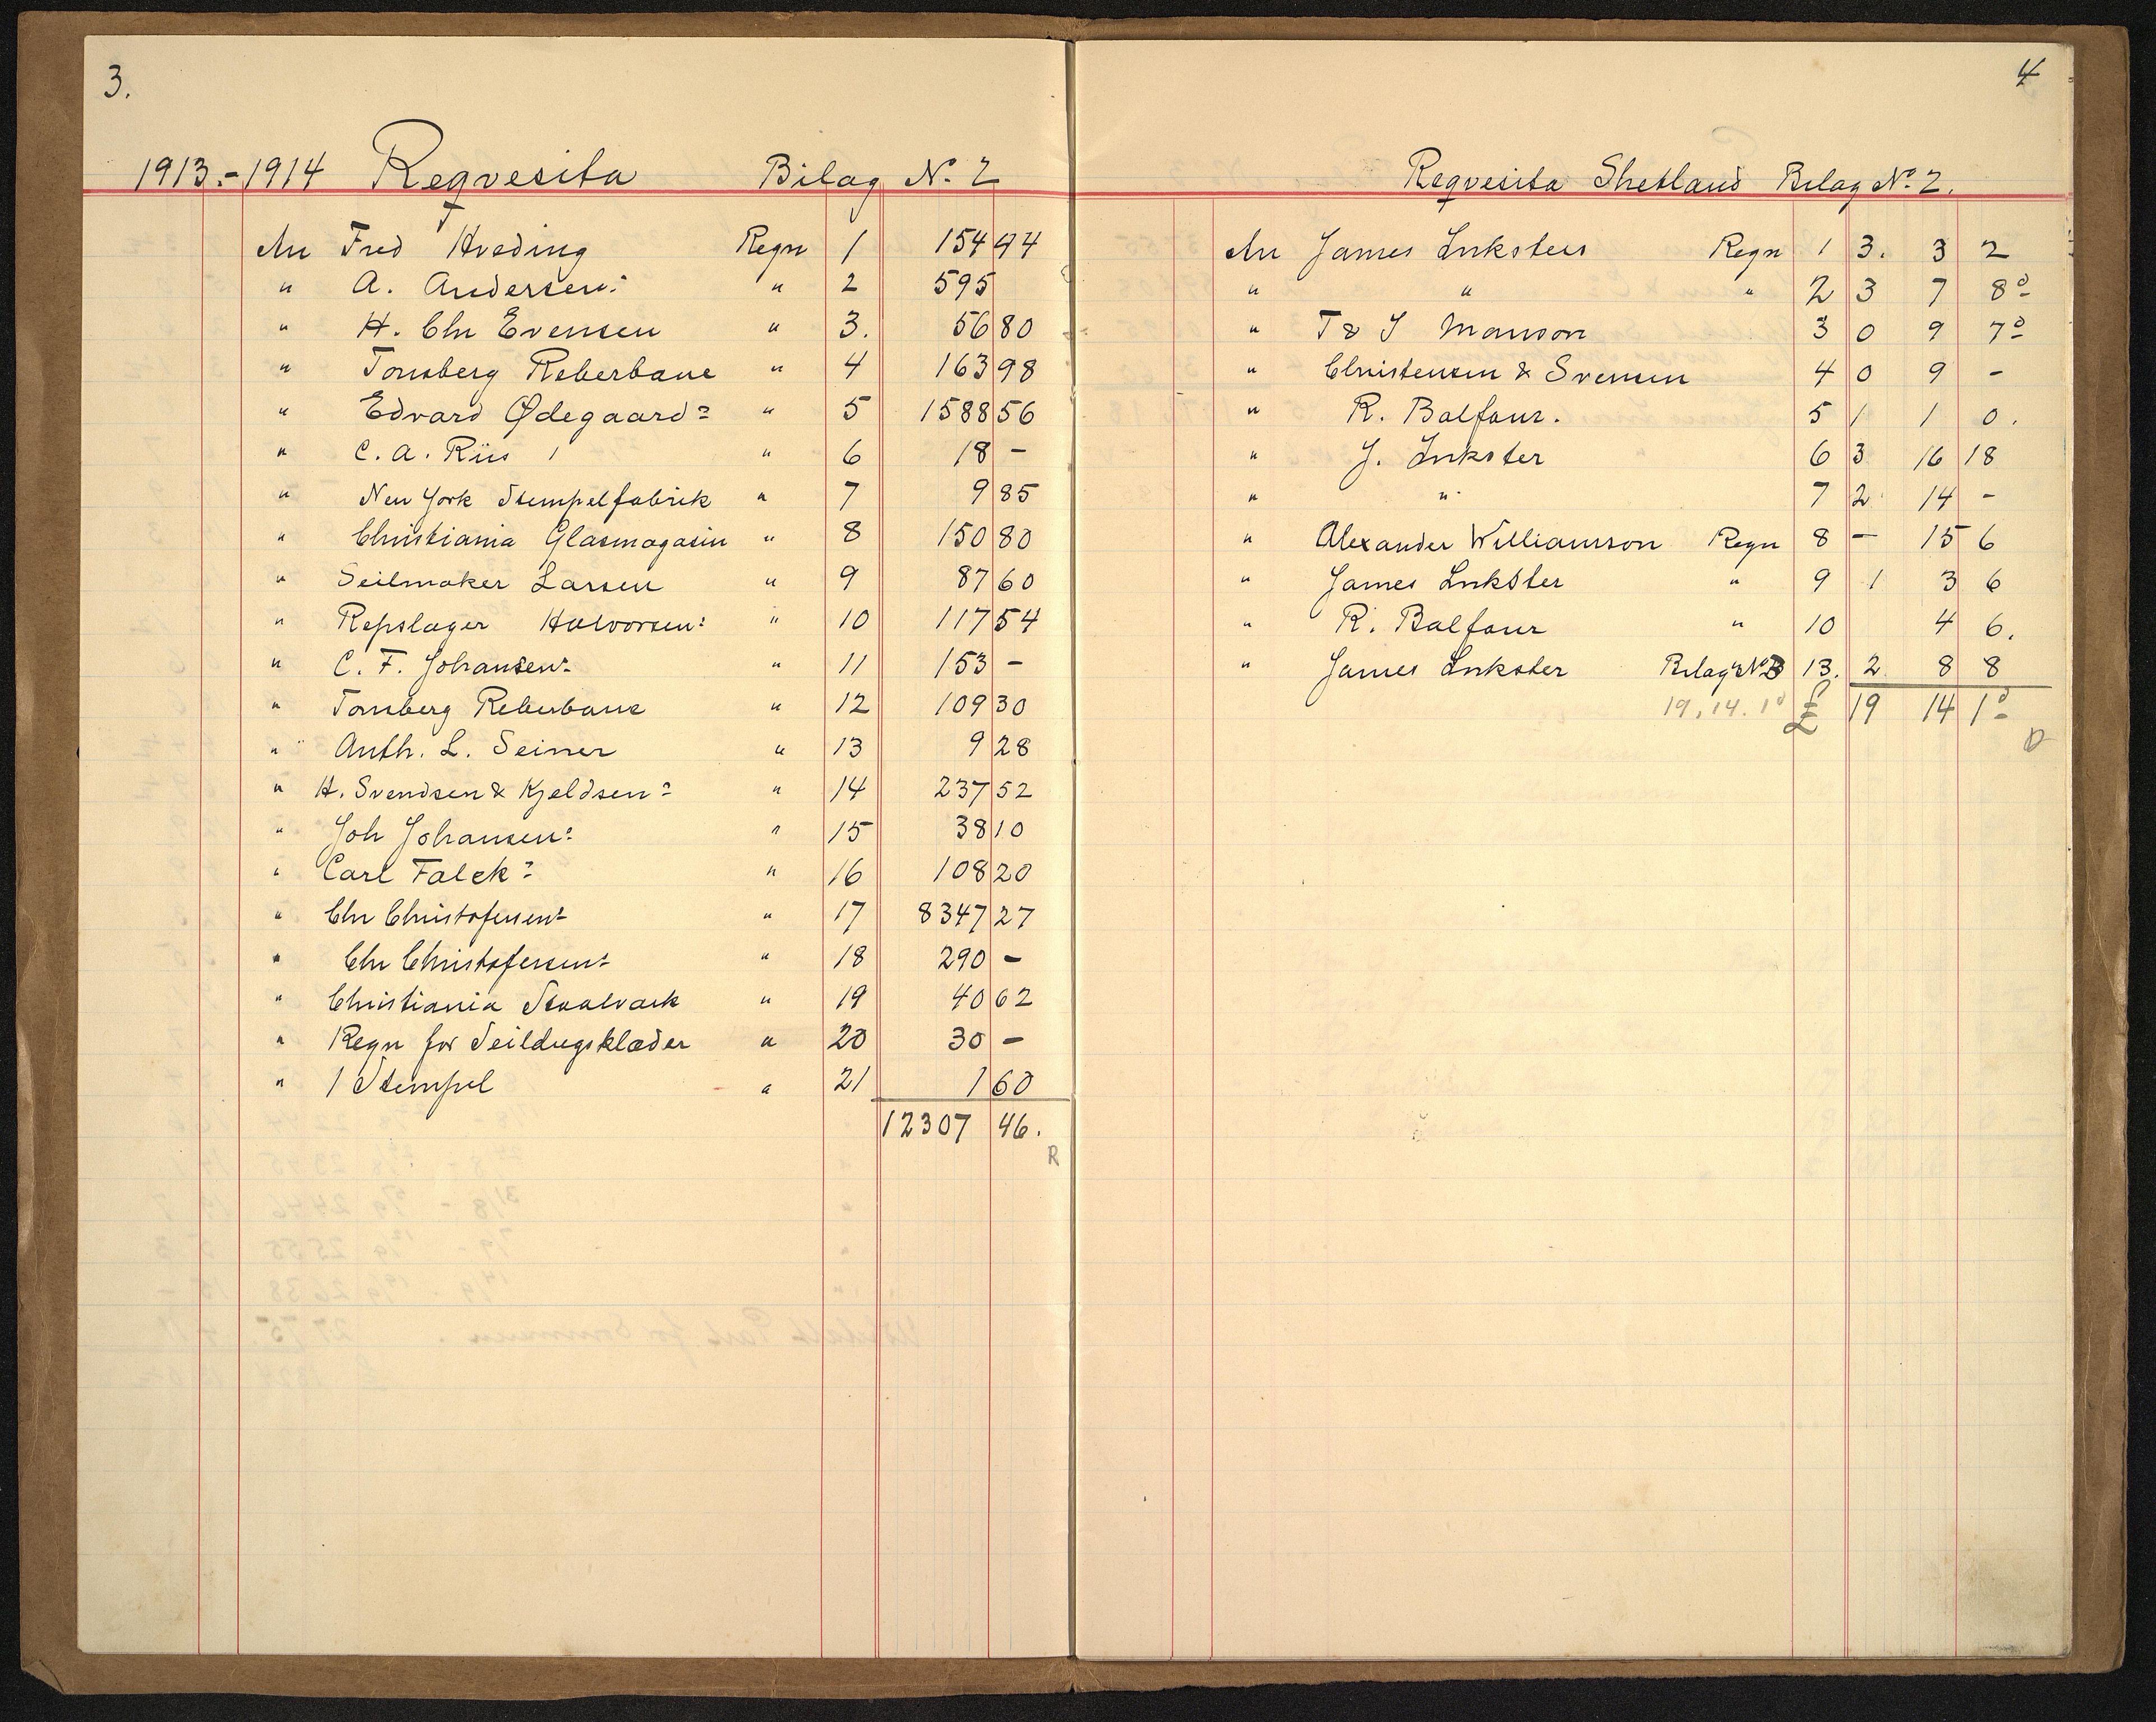 3.
1913.-1914 Reqvesita Bilag No. 2
An Fred Hveding Regn 1 154 94
" A. Andersen: " 2 595
" H. Chr Evensen " 3. 56 80
" Tonsberg Reberbane " 4 163 98
" Edvard Ødegaard: " 5 1588 56
" C. A. Riis " 6 18 -
" New York Stempelfabrik " 7 9 85
" Christiania Glasmagasin " 8 150 80
" Seilmaker Larsen " 9 87 60
" Repslager Halvorsen: " 10 117 54
" C. F. Johansen: " 11 153 -
" Tonsberg Reberbane " 12 109 30
" Anth. L. Seiner " 13 9 28
" H. Svendsen & Kjeldsen: " 14 237 52
" Joh Johansen: " 15 38 10
" Carl Falck: " 16 108 20
" Chr Christofersen: " 17 8347 27
" Chr Christofersen: " 18 290 -
" Christiania Staalvark " 19 40 62
" Regn for Seildugsklæder " 20 30 -
" 1 Stempel " 21 1 60
12307 46.
R
4
Reqvesita Shetland Bilag No. 2.
An James Inksters Regn 1 3. 3 2
" " " 2 3 7 8d
" T & J Manson 3 0 9 7d
" Christensen & Svensen 4 0 9 -
" R. Balfour. 5 1 1 0.
" J. Inkster 6 3 16 18
" " 7 2 14 -
" Alexander Williamson Regn 8 - 15 6
" James Inkster " 9 1 3 6
" R. Balfour " 10 4 6.
" James Inkster Bilag No 3 13. 2 8 8
19.14.1d £ 19 14 1d